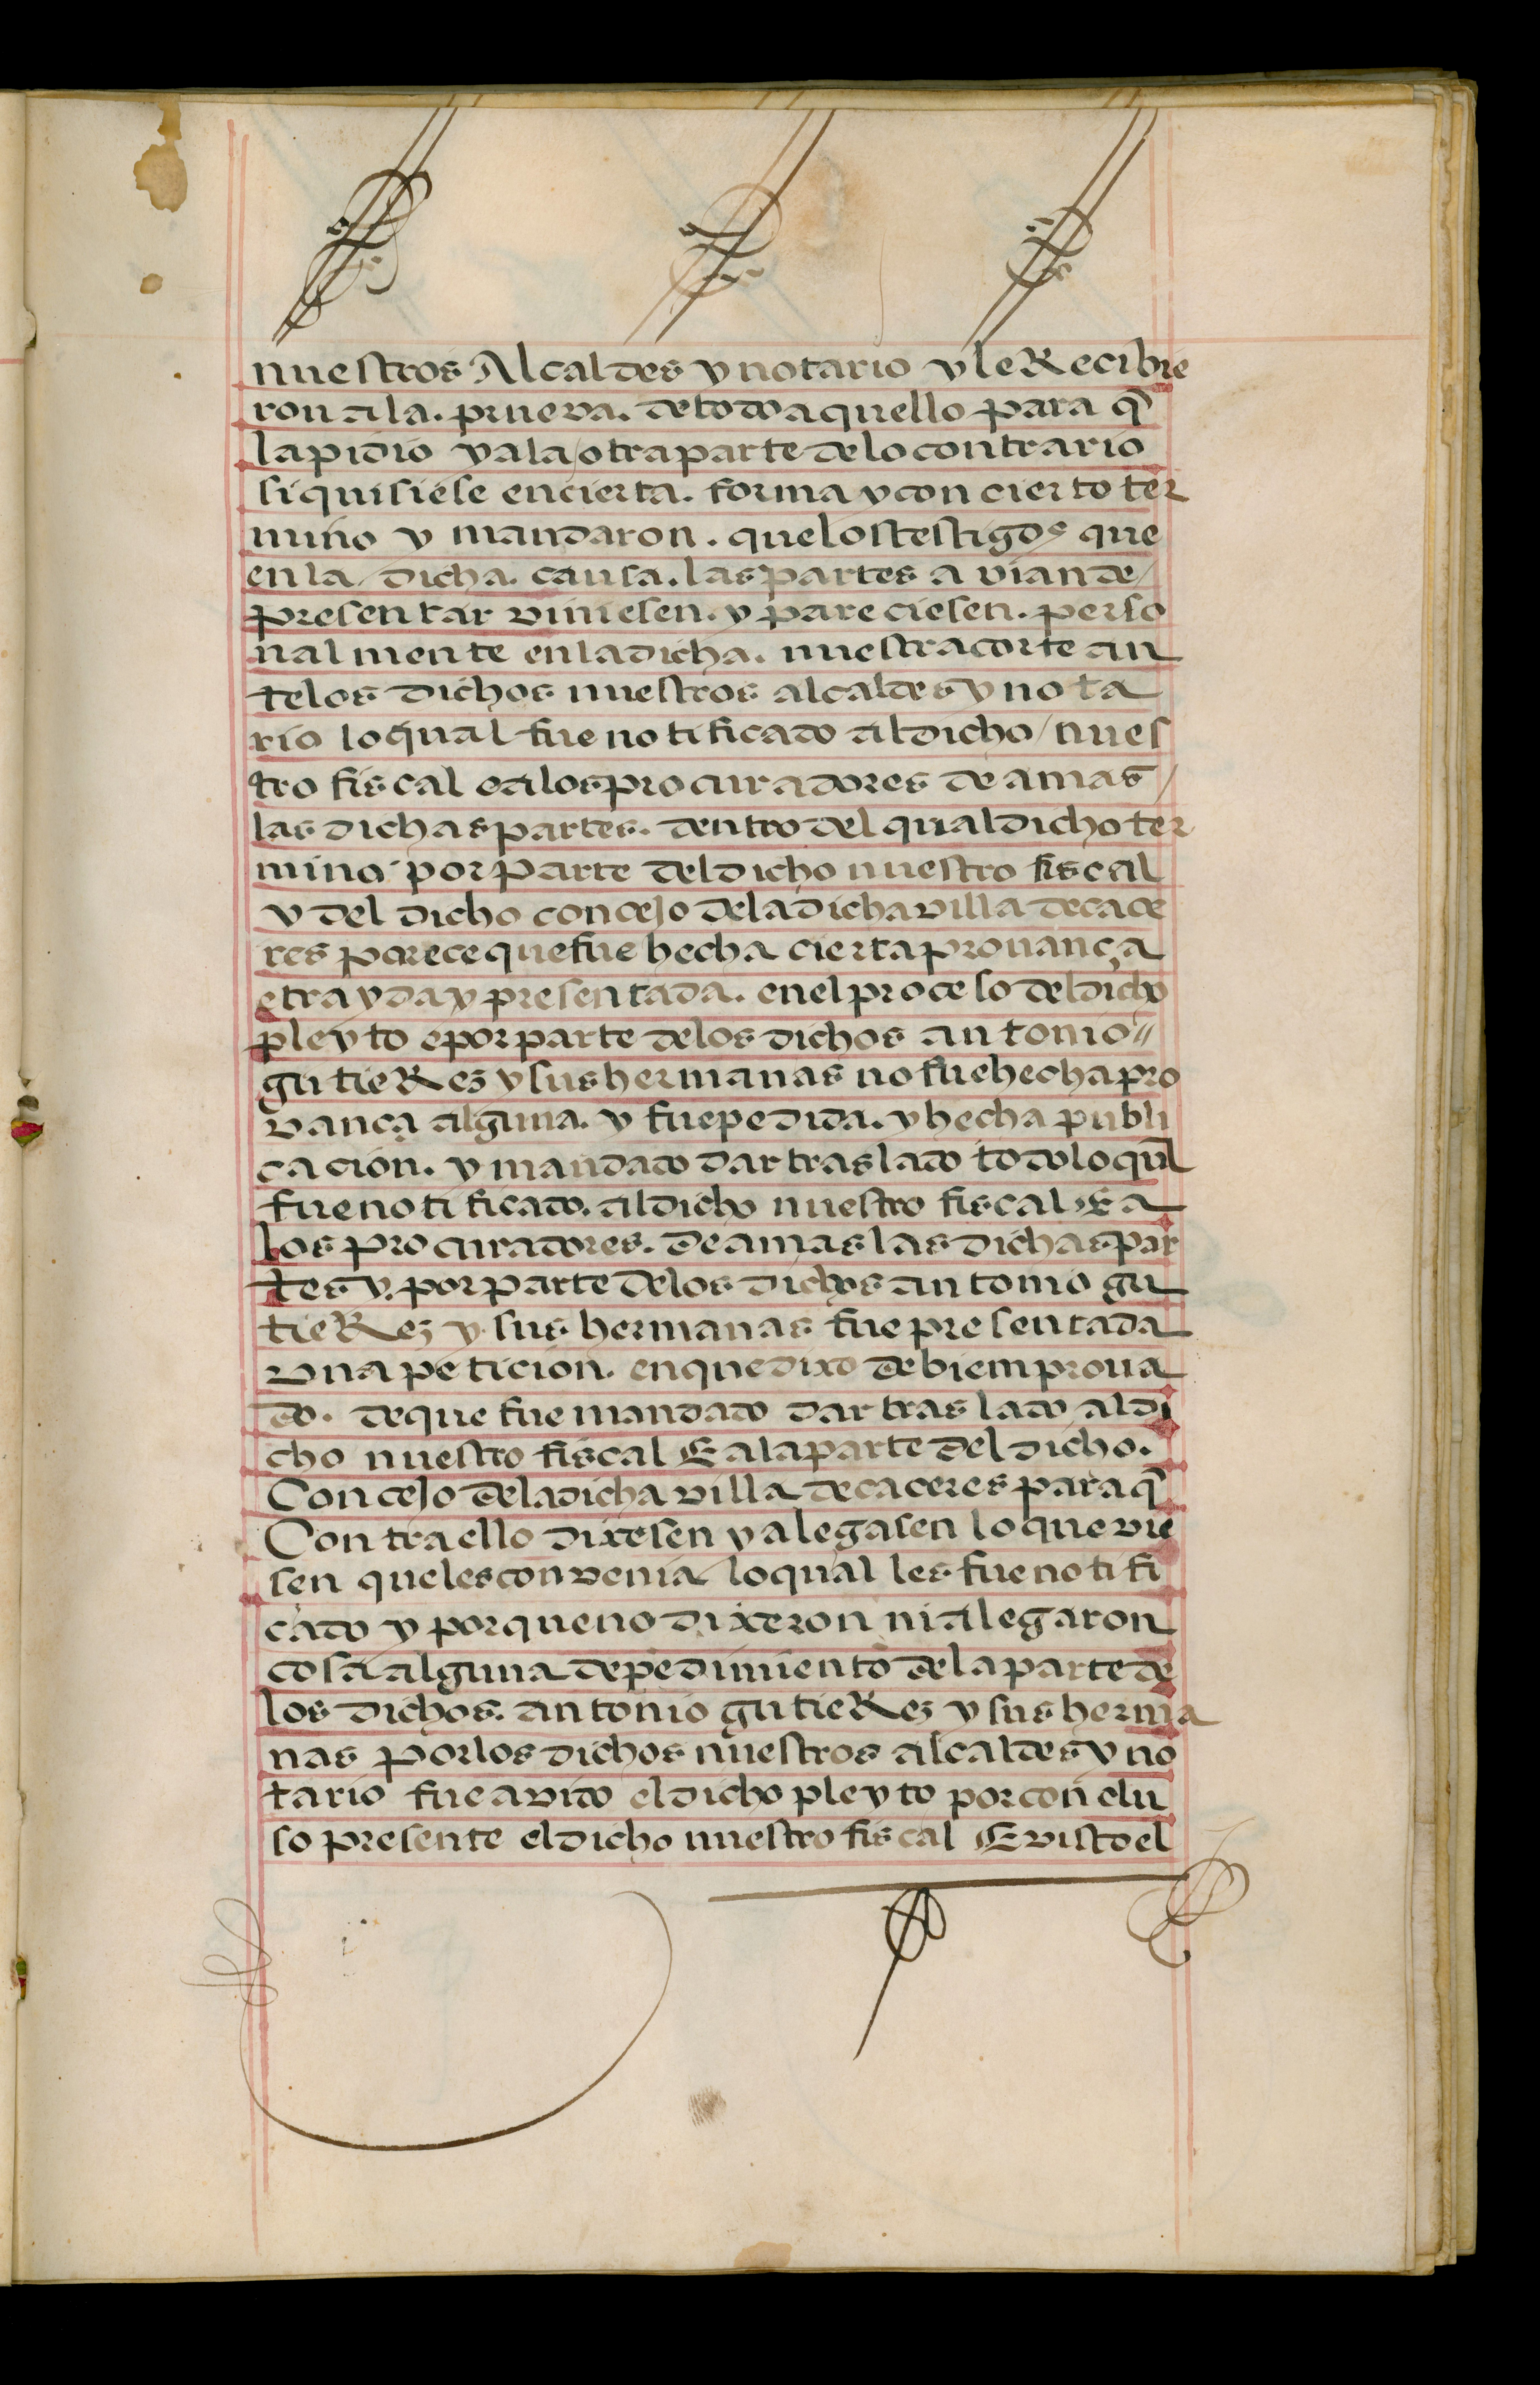 nuestros Alcaldes y notario y le Recibie
ron a la. prueva. de todo aquello para q̃
la pidio y a la / otra parte de lo contrario
si quisiese en cierta. forma y con cierto ter
mino y mandaron. que los testigos que
en la / dicha. causa. las partes avian de /
presentar viniesen. y pareciesen. perso
nalmente en la dicha. nuestra corte an
te los dichos nuestros alcaldes y nota
rio lo qual fue notificado al dicho / nues
tro fiscal e a los procuradores de amas /
las dichas partes. dentro del qual dicho ter
mino por parte del dicho nuestro fiscal
y del dicho concejo de la dicha villa de cace
res parece que fue hecha cierta provança
e trayda y presentada. en el proceso del dicho
pleyto e por parte de los dichos antonio //
gutieRez y sus hermanas no fue hecha pro
vança alguna. y fue pedida. y hecha publi
cacion. y mandado dar traslado todo lo qual
fue notificado. al dicho nuestro fiscal. E a
los procuradores. de amas las dichas par
tes y. por parte de los dichos antonio gu
tieRez y sus hermanas fue presentada
una peticion. en que dixo de biem prova
do. de que fue mandado dar traslado al di
cho nuestro fiscal E a la parte del dicho.
Concejo de la dicha villa de caceres para q̃
Contra ello dixesen y alegasen lo que vie
sen que les convenia lo qual les fue notifi
cado y por que no dixeron ni alegaron
cosa alguna de pedimiento de la parte de
los dichos. antonio gutieRez y sus herma
nas por los dichos nuestros alcaldes y no
tario fue avido el dicho pleyto por conclu
so presente el dicho nuestro fiscal E visto el